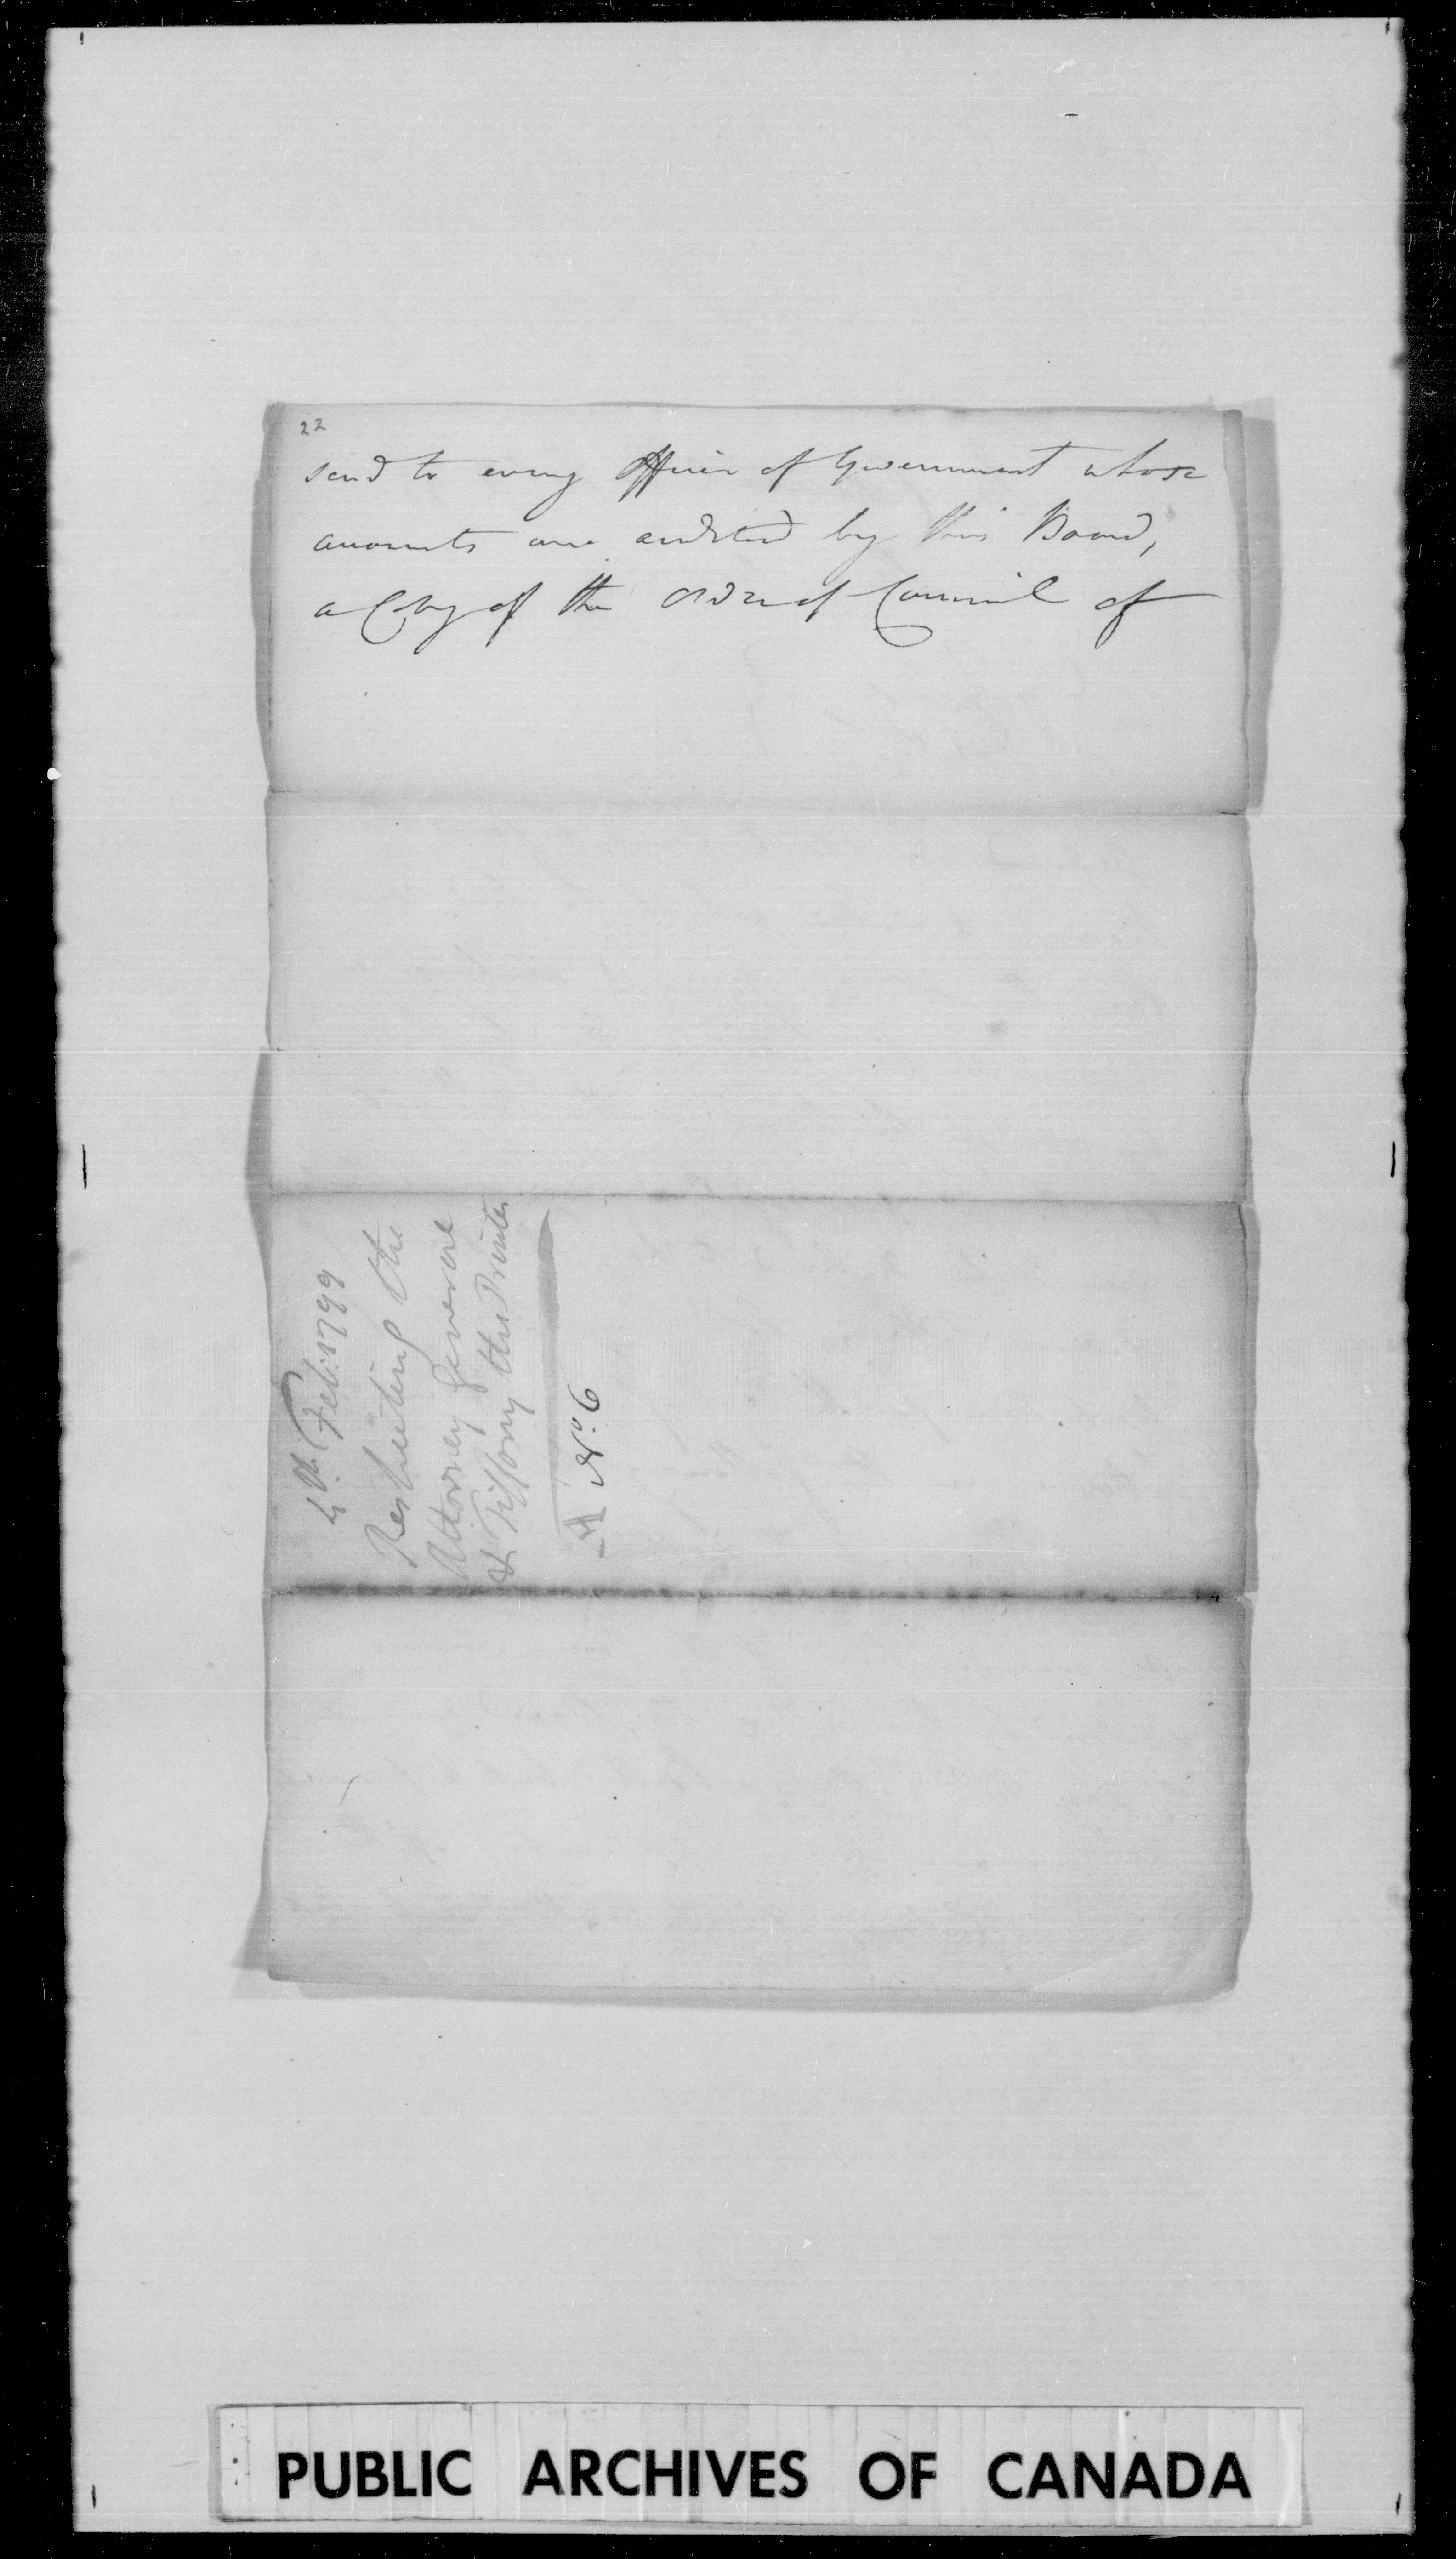 22
send to every Officer of Government whose
accounts are audited by this Board,
a Copy of the Order of Council of
4th. Feb: 1799
Respecting the
Attorney General
& Tiffany the Printer
No. 6
PUBLIC ARCHIVES OF CANADA